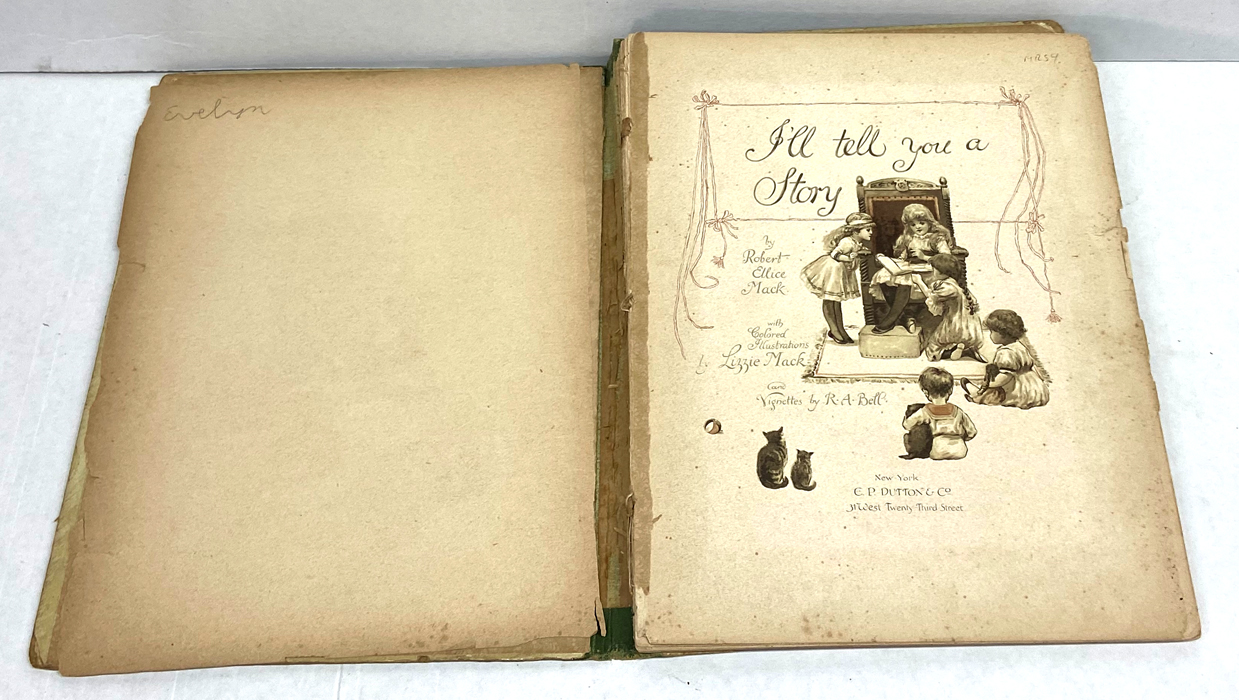 Evelyn
I'll tell you a
Story
by
Robert
Ellice
Mack
with
Colored
Illustrations
by Lizzie Mack
and
Vignettes by R. A. Bell.
New York
E. P. DUTTON & Co
31 West Twenty Third Street